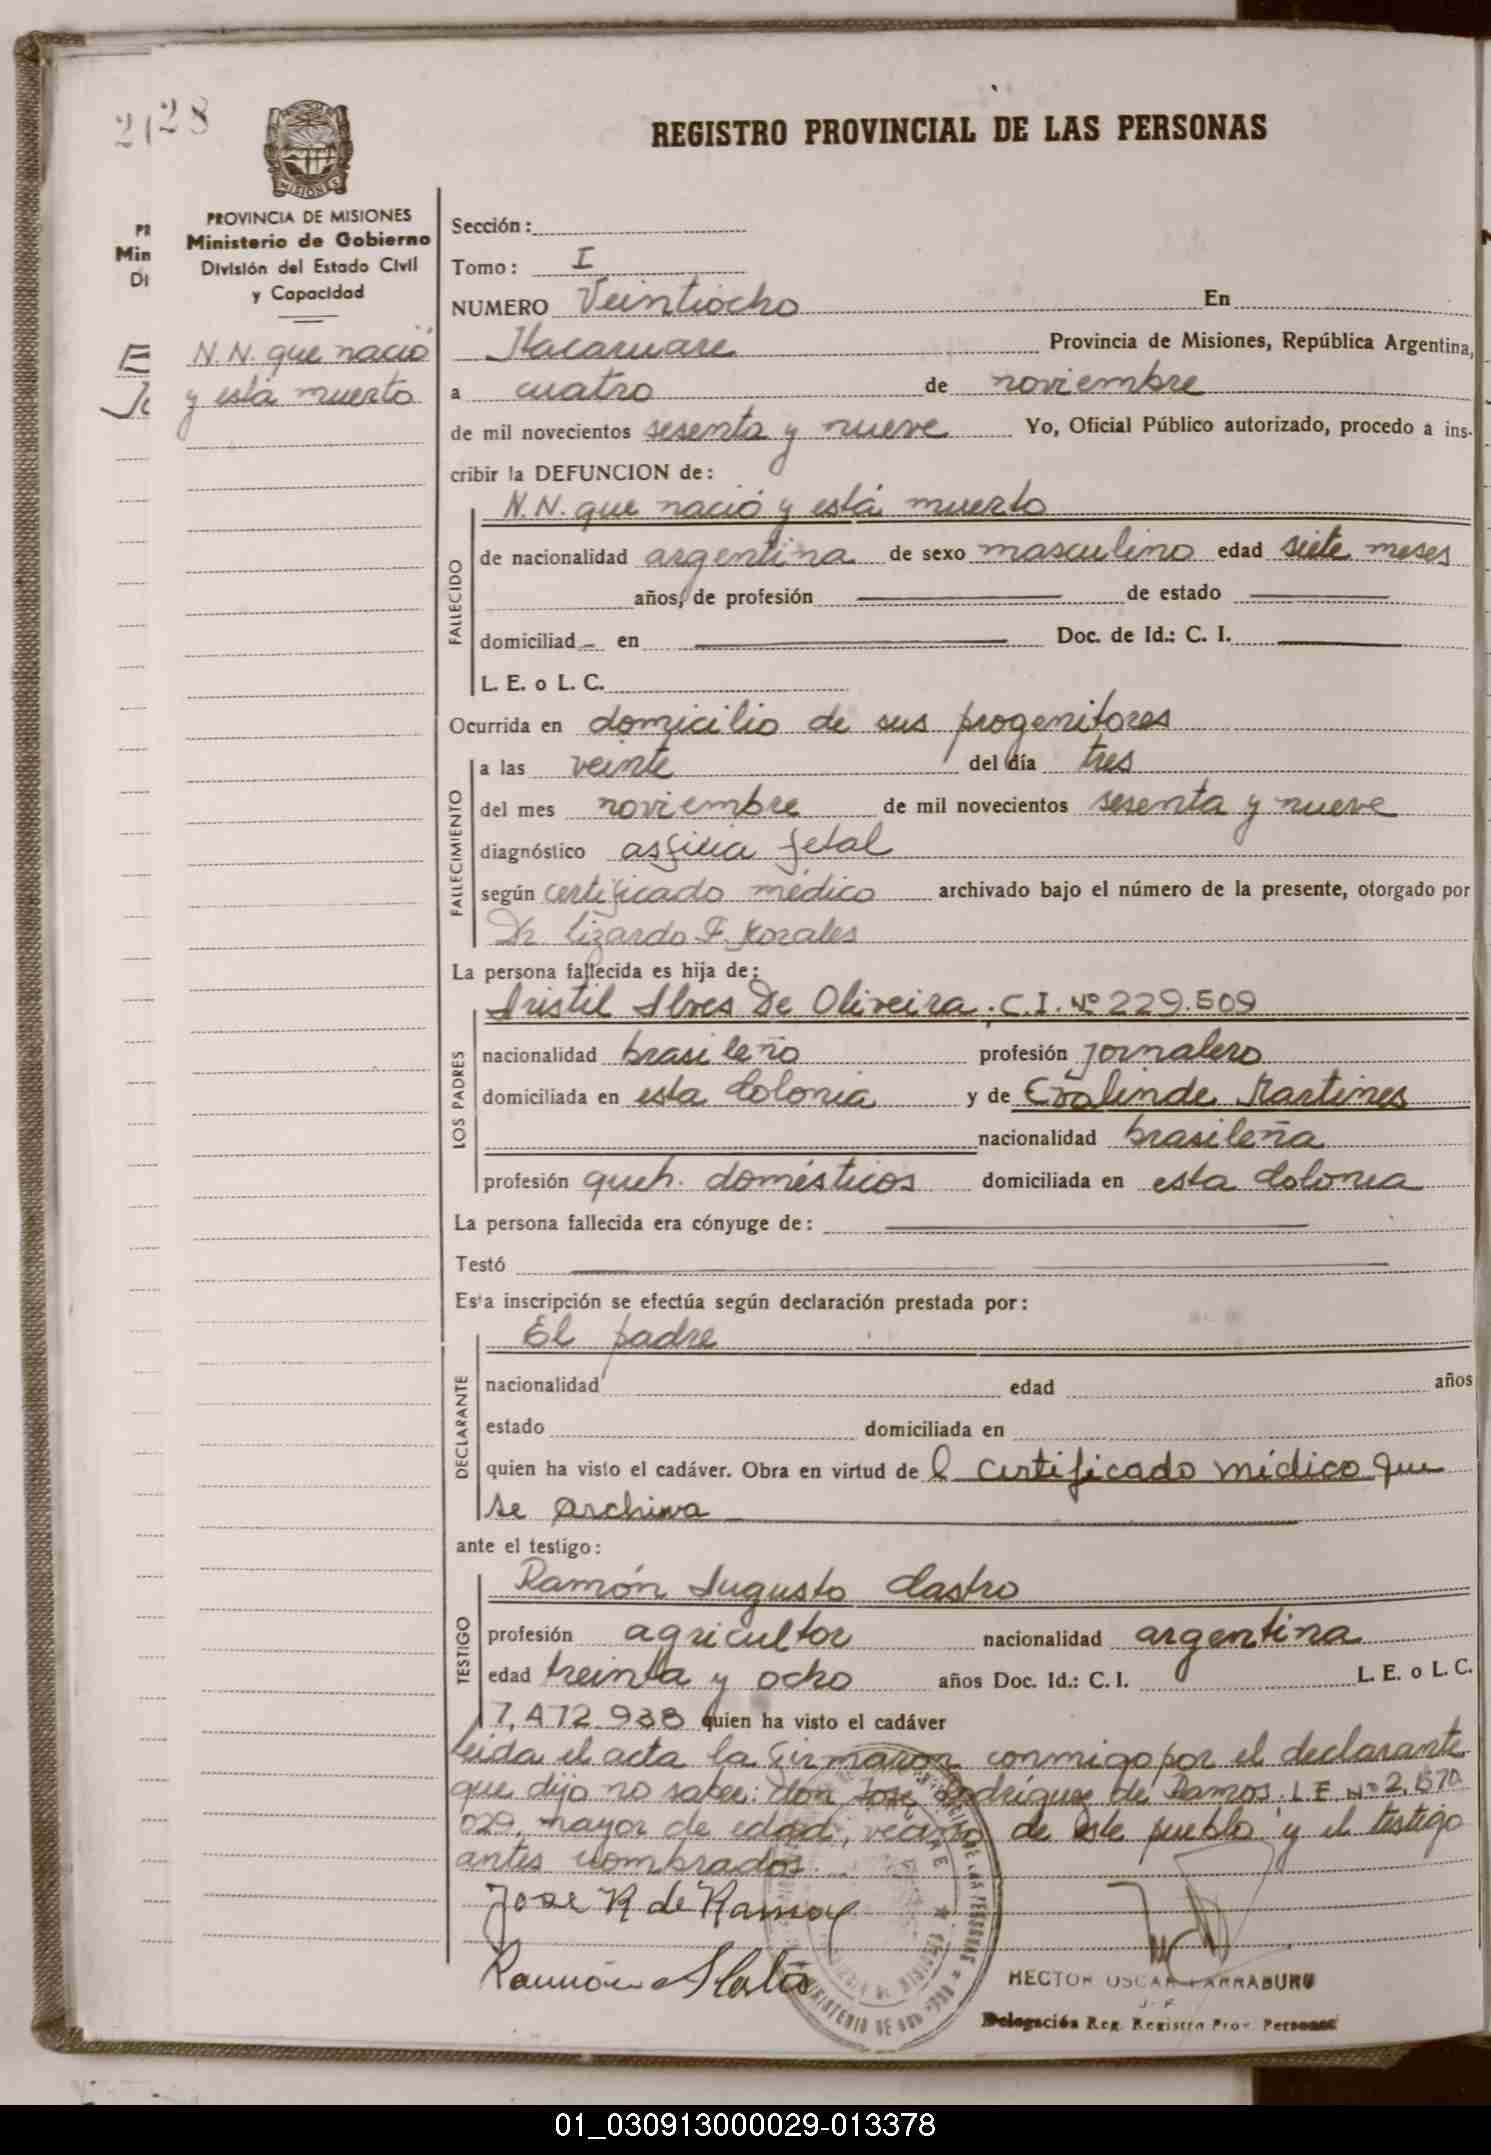 28
REGISTRO PROVINCIAL DE LAS PERSONAS
MISIONES
PROVINCIA DE MISIONES
Ministerio de Gobierno
División del Estado Civil
y Capacidad
N.N. que nació
y está muerto
Sección:
Tomo: I
NUMERO Veintiocho En
Itacaruare Provincia de Misiones, República Argentina,
a cuatro de noviembre
de mil novecientos sesenta y nueve Yo, Oficial Público autorizado, procedo a ins-
cribir la DEFUNCION de:
FALLECIDO
N.N. que nació y está muerto
de nacionalidad argentina de sexo masculino edad siete meses
años, de profesión de estado
domiciliad - en Doc. de Id.: C. I.
L. E. o L. C.
Ocurrida en domicilio de sus progenitores
FALLECIMIENTO
a las veinte del día tres
del mes noviembre de mil novecientos sesenta y nueve
diagnóstico asfixia fetal
según certificado médico archivado bajo el número de la presente, otorgado por
Dr. Lizardo F. Morales
La persona fallecida es hija de:
LOS PADRES
Aristil Alves De Oliveira. C.I. Nº 229.509
nacionalidad brasileño profesión jornalero
domiciliada en esta Colonia y de Martines
nacionalidad brasileña
profesión queh. domésticos domiciliada en esta Colonia
La persona fallecida era cónyuge de:
Testó
Esta inscripción se efectúa según declaración prestada por:
DECLARANTE
El padre
nacionalidad edad años
estado domiciliada en
quien ha visto el cadáver. Obra en virtud de l certificado médico que
se archiva
ante el testigo:
TESTIGO
Ramón Augusto Castro
profesión agricultor nacionalidad argentina
edad treinta y ocho años Doc. Id.: C. I. L. E. o L. C.
7.472.938 quien ha visto el cadáver
leida el acta la firmaron conmigo por el declarante
que dijo no saber: don José Rodríguez de Ramos L.E. Nº 2.670
029, mayor de edad, vecino de este pueblo y el testigo
antes nombrados.
Jose R de Ramos
Ramón A
HECTOR OSCAR LARRABURU
J. P.
Delegación Reg. Registro Prov. Personas
01_030913000029-013378